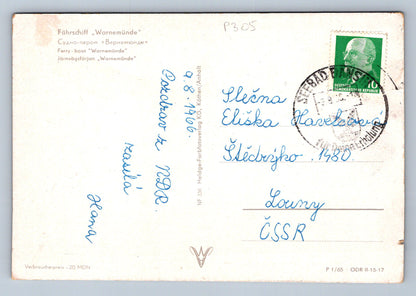 Fährschiff „Warnemünde"
Судно-паром «Варнемюнде»
Ferry-boat "Warnemünde"
Järnvägsfärjan "Warnemünde"
P305
9.8.1966.
Pozdrav z NDR
zasílá
Hana
SEEBAD BANSIN
10
Slečna
Eliška Havelková
Štědrýho 1980.
Louny
ČSSR
Verbraucherpreis -,20 MDN
P 1/65 DDR II-15-17